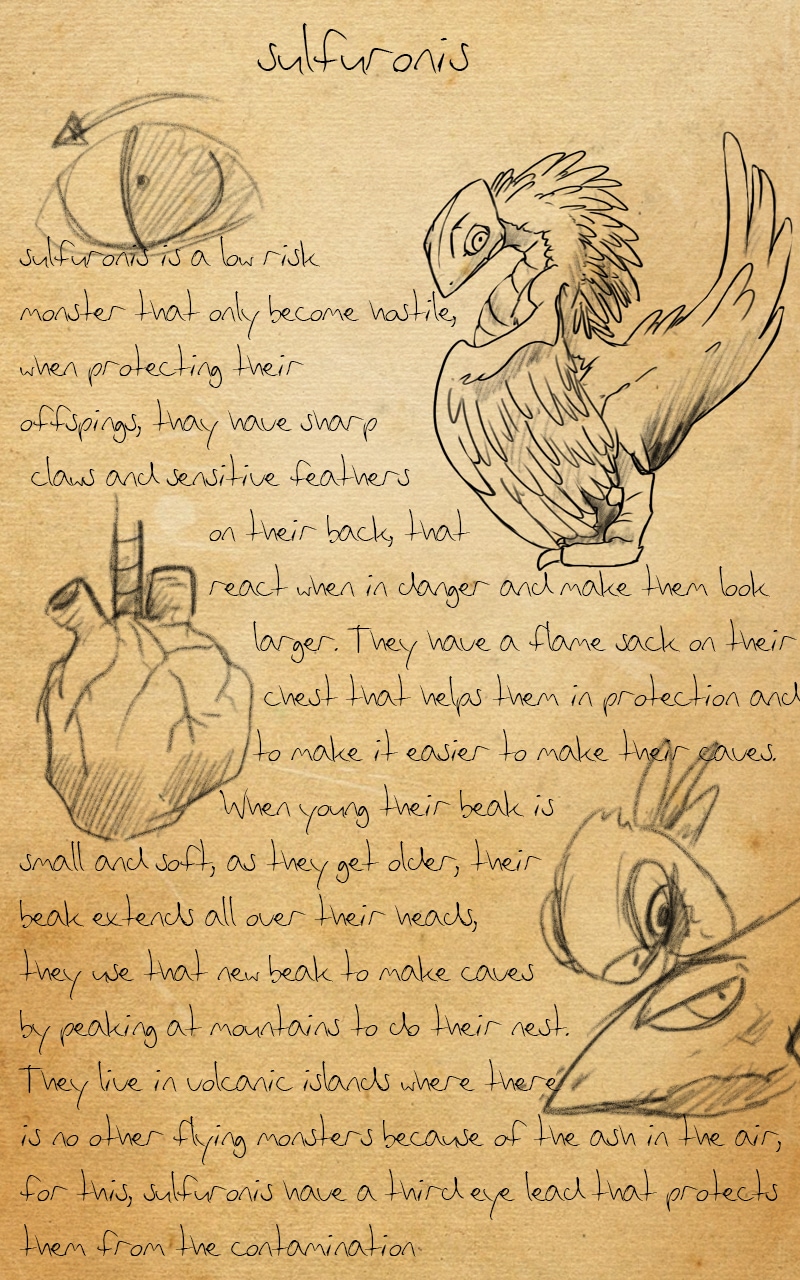 sulfuronis
sulfuronis is a low risk
monster that only become hostile,
when protecting their
offspings, thay have sharp
claws and sensitive feathers
on their back, that
react when in danger and make them look
larger. They have a flame sack on their
chest that helps them in protection and
to make it easier to make their caves.
When young their beak is
small and soft, as they get older, their
beak extends all over their heads,
they use that new beak to make caves
by peaking at mountains to do their nest.
They live in volcanic islands where there
is no other flying monsters because of the ash in the air,
for this, sulfuronis have a third eye lead that protects
them from the contamination